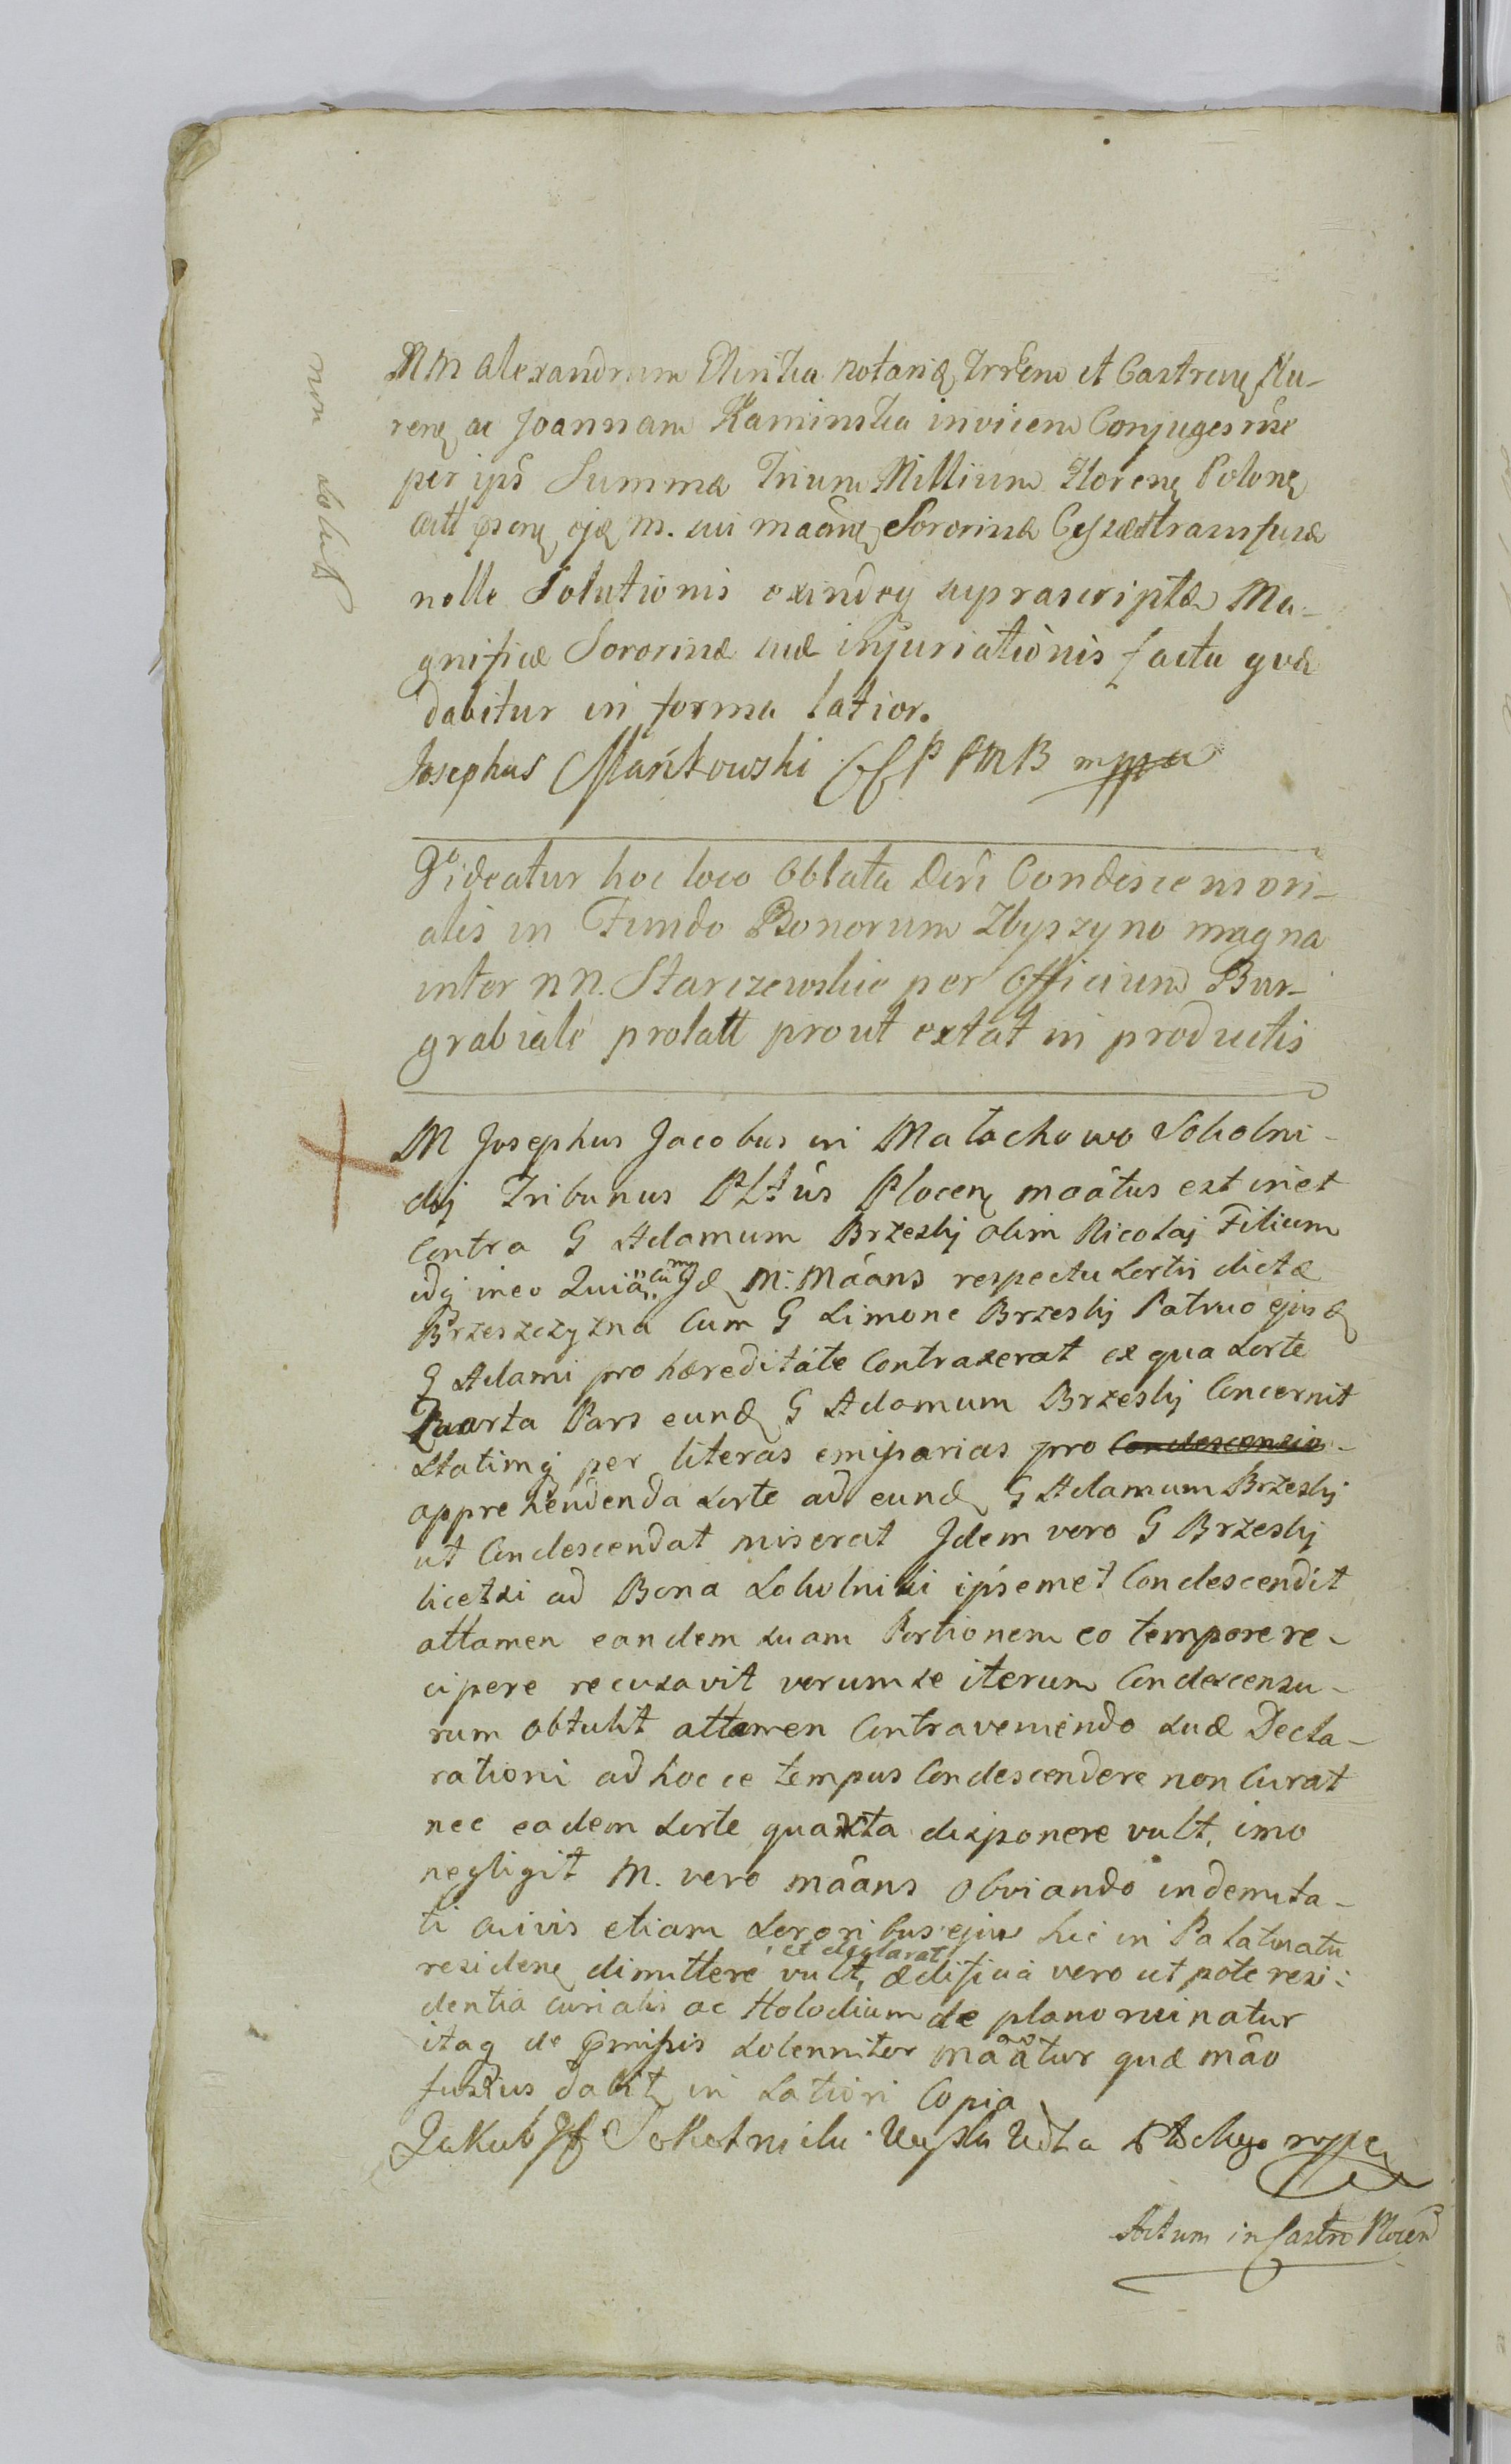 non solut
MM Alexandrum Elinska notariæ Trrlem et Castren Nu-
ren ac Joannam Kaminska invicem Conjuges rñe
per ips Summæ Trium Millium Floren Polon
m. sui maãnę Sororinæ
nolle Solutionis exindeq suprascriptæ Ma-
gnificæ Sororinæ suæ injuriationis facta quæ
dabitur in forma latior.
Josephus Mańkowski PMB mppa
Videatur hoc loco Oblata Dcri Condescensori-
alis in Fundo Bonorum Zbyszyno magna
inter nn. Starczewskie per Officium Bur-
grabiale prolatt prout extat in productis
M Josephus Jacobus in Małachowo Sokolni-
ckj Tribunus Pltûs Plocen maâtus est iñet
Contra G Adamum Brzeskj olim Nicolaj Filium
idq ineo Quia cum Jd M: Mãans respectu Sortis dictæ
Brzeszczyzna Cum G Simone Brzeskj Patruo ejusd
G Adami pro hæreditate Contraxerat ex qua Sorte
Quarta Pars eund G Adamum Brzeskj Concernit
Statimq per literas emissarias pro Condescensio-
apprehendenda Sorte ad eund G Adamum Brzeskj
ut Condescendat miserat Idem vero G Brzeskj
licetsi ad Bona Sokolniki ipsemet Condescendit
attamen eandem suam Portionem eo tempore re-
cipere recusavit verum se iterum Condescensu-
rum obtulit attamen Contraveniendo suæ Decla-
rationi ad hocce tempus Condescendere non Curat
nec eadem Sorte quarta disponere vult, imo
negligit M. vero mãans Obviando indemita-
ti cuivis etiam Sororibus ejus hic in Palatinatu
residen dimittere vult, et declarat ædificia vero ut pote resi-
dentia curialis ac Holodium de plano ruinatur
itaq de præmissis Solenniter mãatur quæ mão
fusius dabit in Latiori Copia
Jakub Jf Sokolnicki mppa
Actum in Castro Plocen